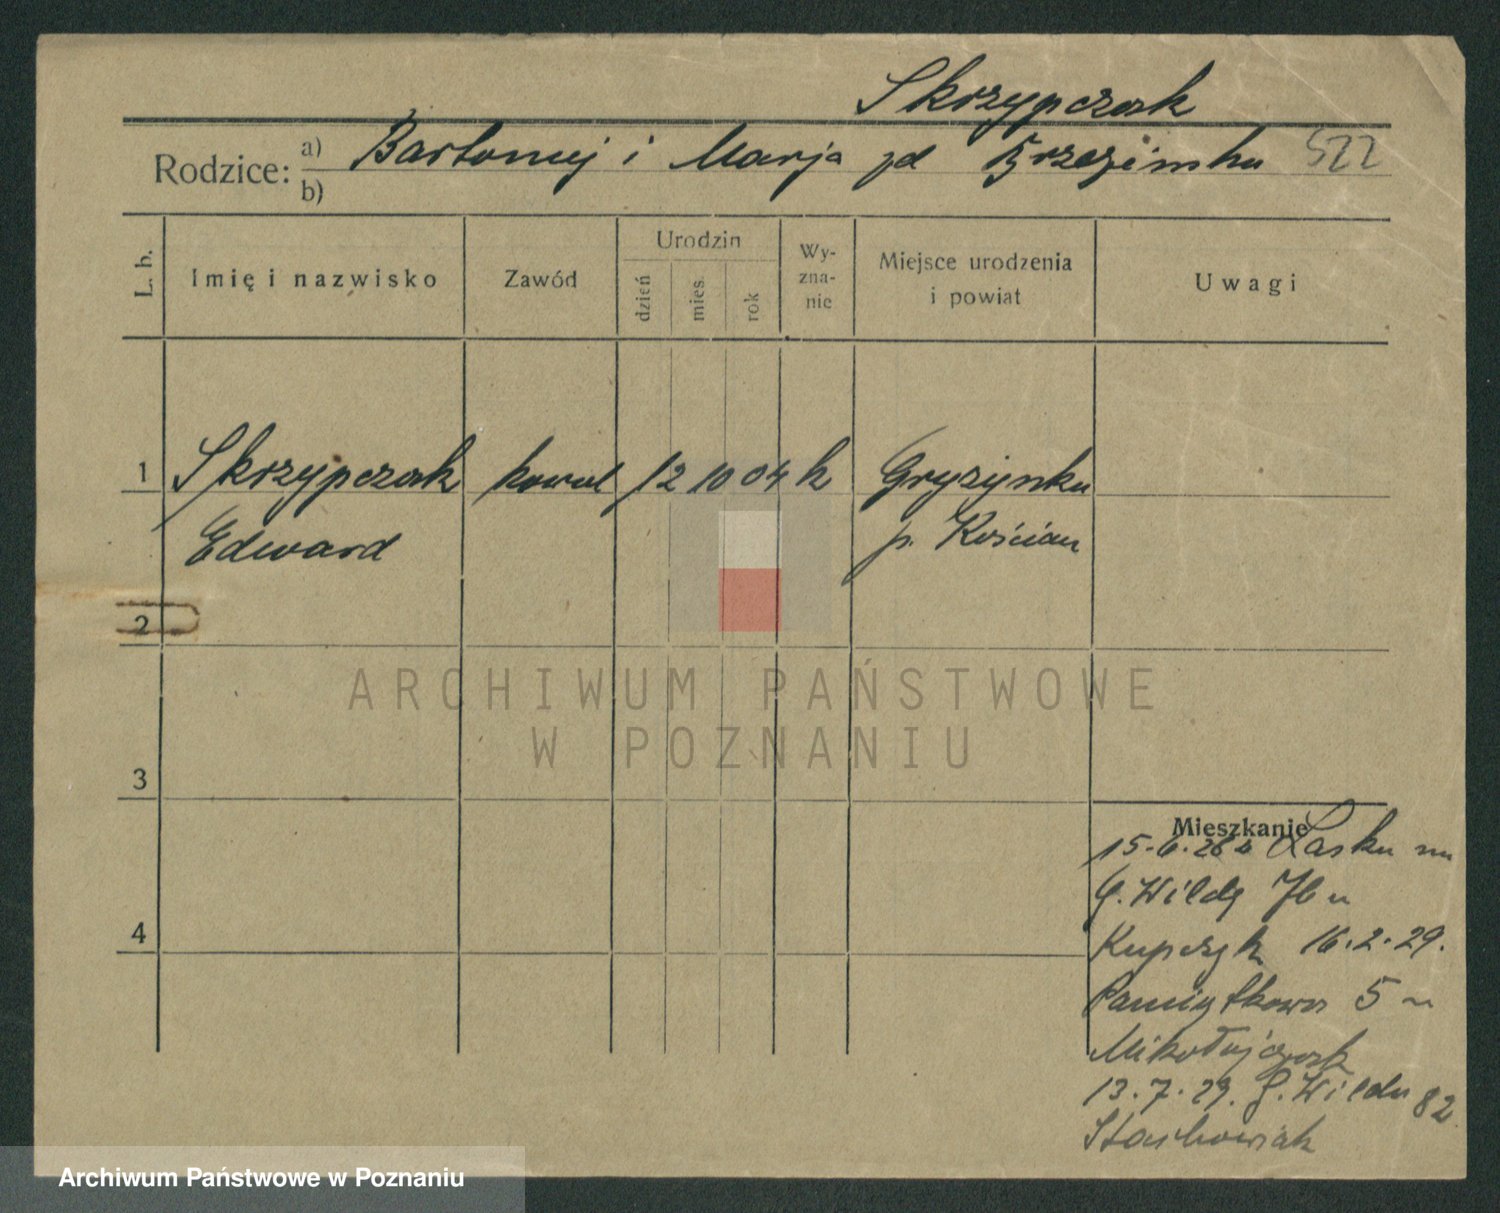 Skrzypczak
Rodzice: a) Bartomiej i Marja zd Brzezińska 522
b)
L. b. Imię i nazwisko Zawód Urodzin dzień mies. rok Wy-zna-nie Miejsce urodzenia i powiat Uwagi
1 Skrzypczak kowal 12 10 04 k Gryżynka
Edward p. Kościan
2
3
4
Mieszkanie
15.6.28 z Lasku na
G. Wildę 76 u
Kupczyk 16.2.29.
Pamiątkowa 5 u
Mikołajczak
13.7.29. G. Wilda 82
Stachowiak
ARCHIWUM PAŃSTWOWE
W POZNANIU
Archiwum Państwowe w Poznaniu